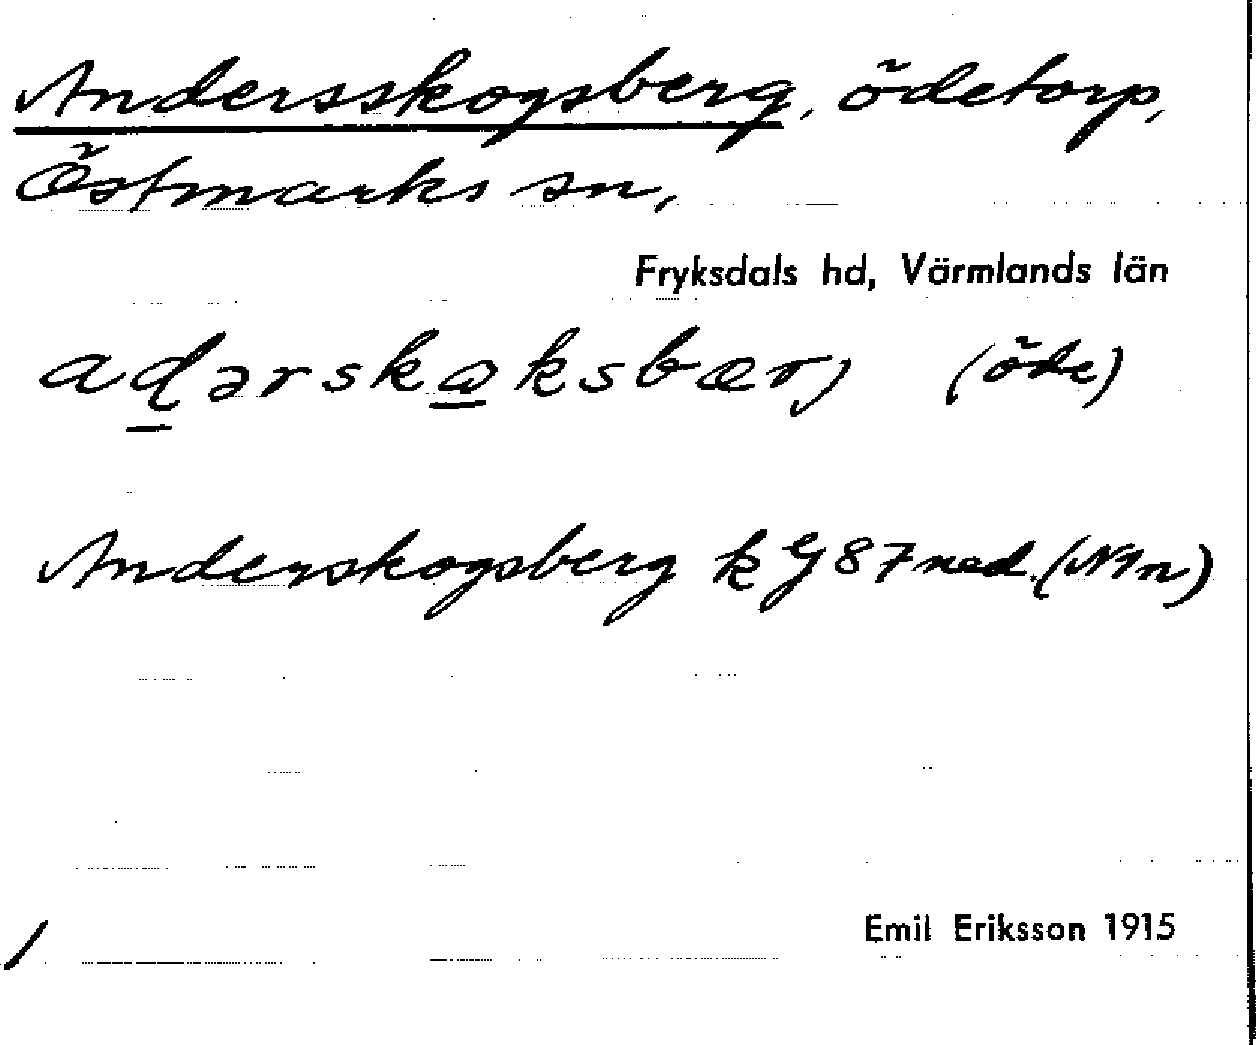 Andersskogsberg, ödetorp,
Östmarks sn,
Fryksdals hd, Värmlands län
adərskɷksbærj (öde)
Anderskogsberg k G 87 ned. (N1n)
Emil Eriksson 1915